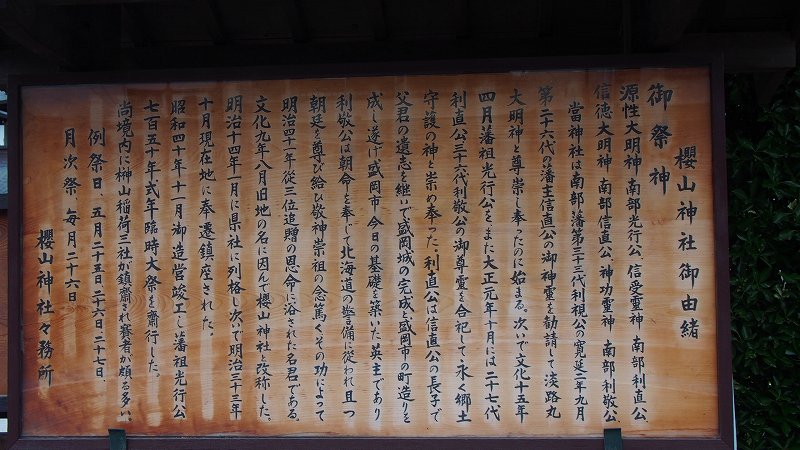 櫻山神社御由緒
御祭神
源性大明神 南部光行公、信受靈神 南部利直公、
信徳大明神 南部信直公、神功靈神 南部利敬公、
當神社は南部藩第三十三代利視公の寛延二年九月
第二十六代の藩主信直公の御神靈を勧請して淡路丸
大明神と尊崇し奉ったのに始まる。次いで文化十五年
四月藩祖光行公をまた大正元年十月には二十七代
利直公三十六代利敬公の御尊靈を合祀して永く郷土
守護の神と崇め奉った。利直公は信直公の長子で
父君の遺志を継いで盛岡城の完成と盛岡市の町造りを
成し遂げ盛岡市今日の基礎を築いた英主であり
利敬公は朝命を奉じて北海道の警備に従われ且つ
朝廷を尊び給ひ敬神崇祖の念篤くその功によって
明治四十年従三位追贈の恩命に浴された名君である。
文化九年八月旧地の名に因んで櫻山神社と改称した。
明治十四年一月に県社に列格し次いで明治三十三年
十月現在地に奉遷鎮座された。
昭和四十年十一月御造営竣工し藩祖光行公
七百五十年式年臨時大祭を齋行した。
尚境内に榊山稲荷三社が鎮齋され賽者が頗る多い。
例祭日、五月二十五日二十六日、二十七日、
月次祭、毎月二十六日
櫻山神社々務所